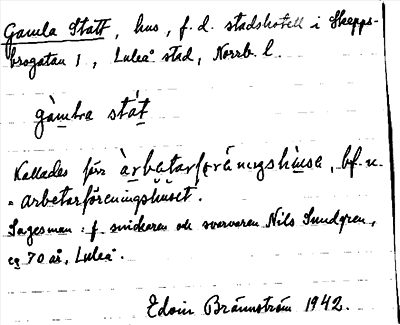 Gamla Statt, hus, f.d. stadshotell i Skepps-
brogatan 1, Luleå stad, Norrb. l.
gàmbra stát
Kallades förr àrbatarfräningshùse, bf. u.
= arbetarföreningshuset.
Sagesman: f. snickaren och svarvaren Nils Sundgren,
c:a 70 år, Luleå.
Edvin Brännström 1942.